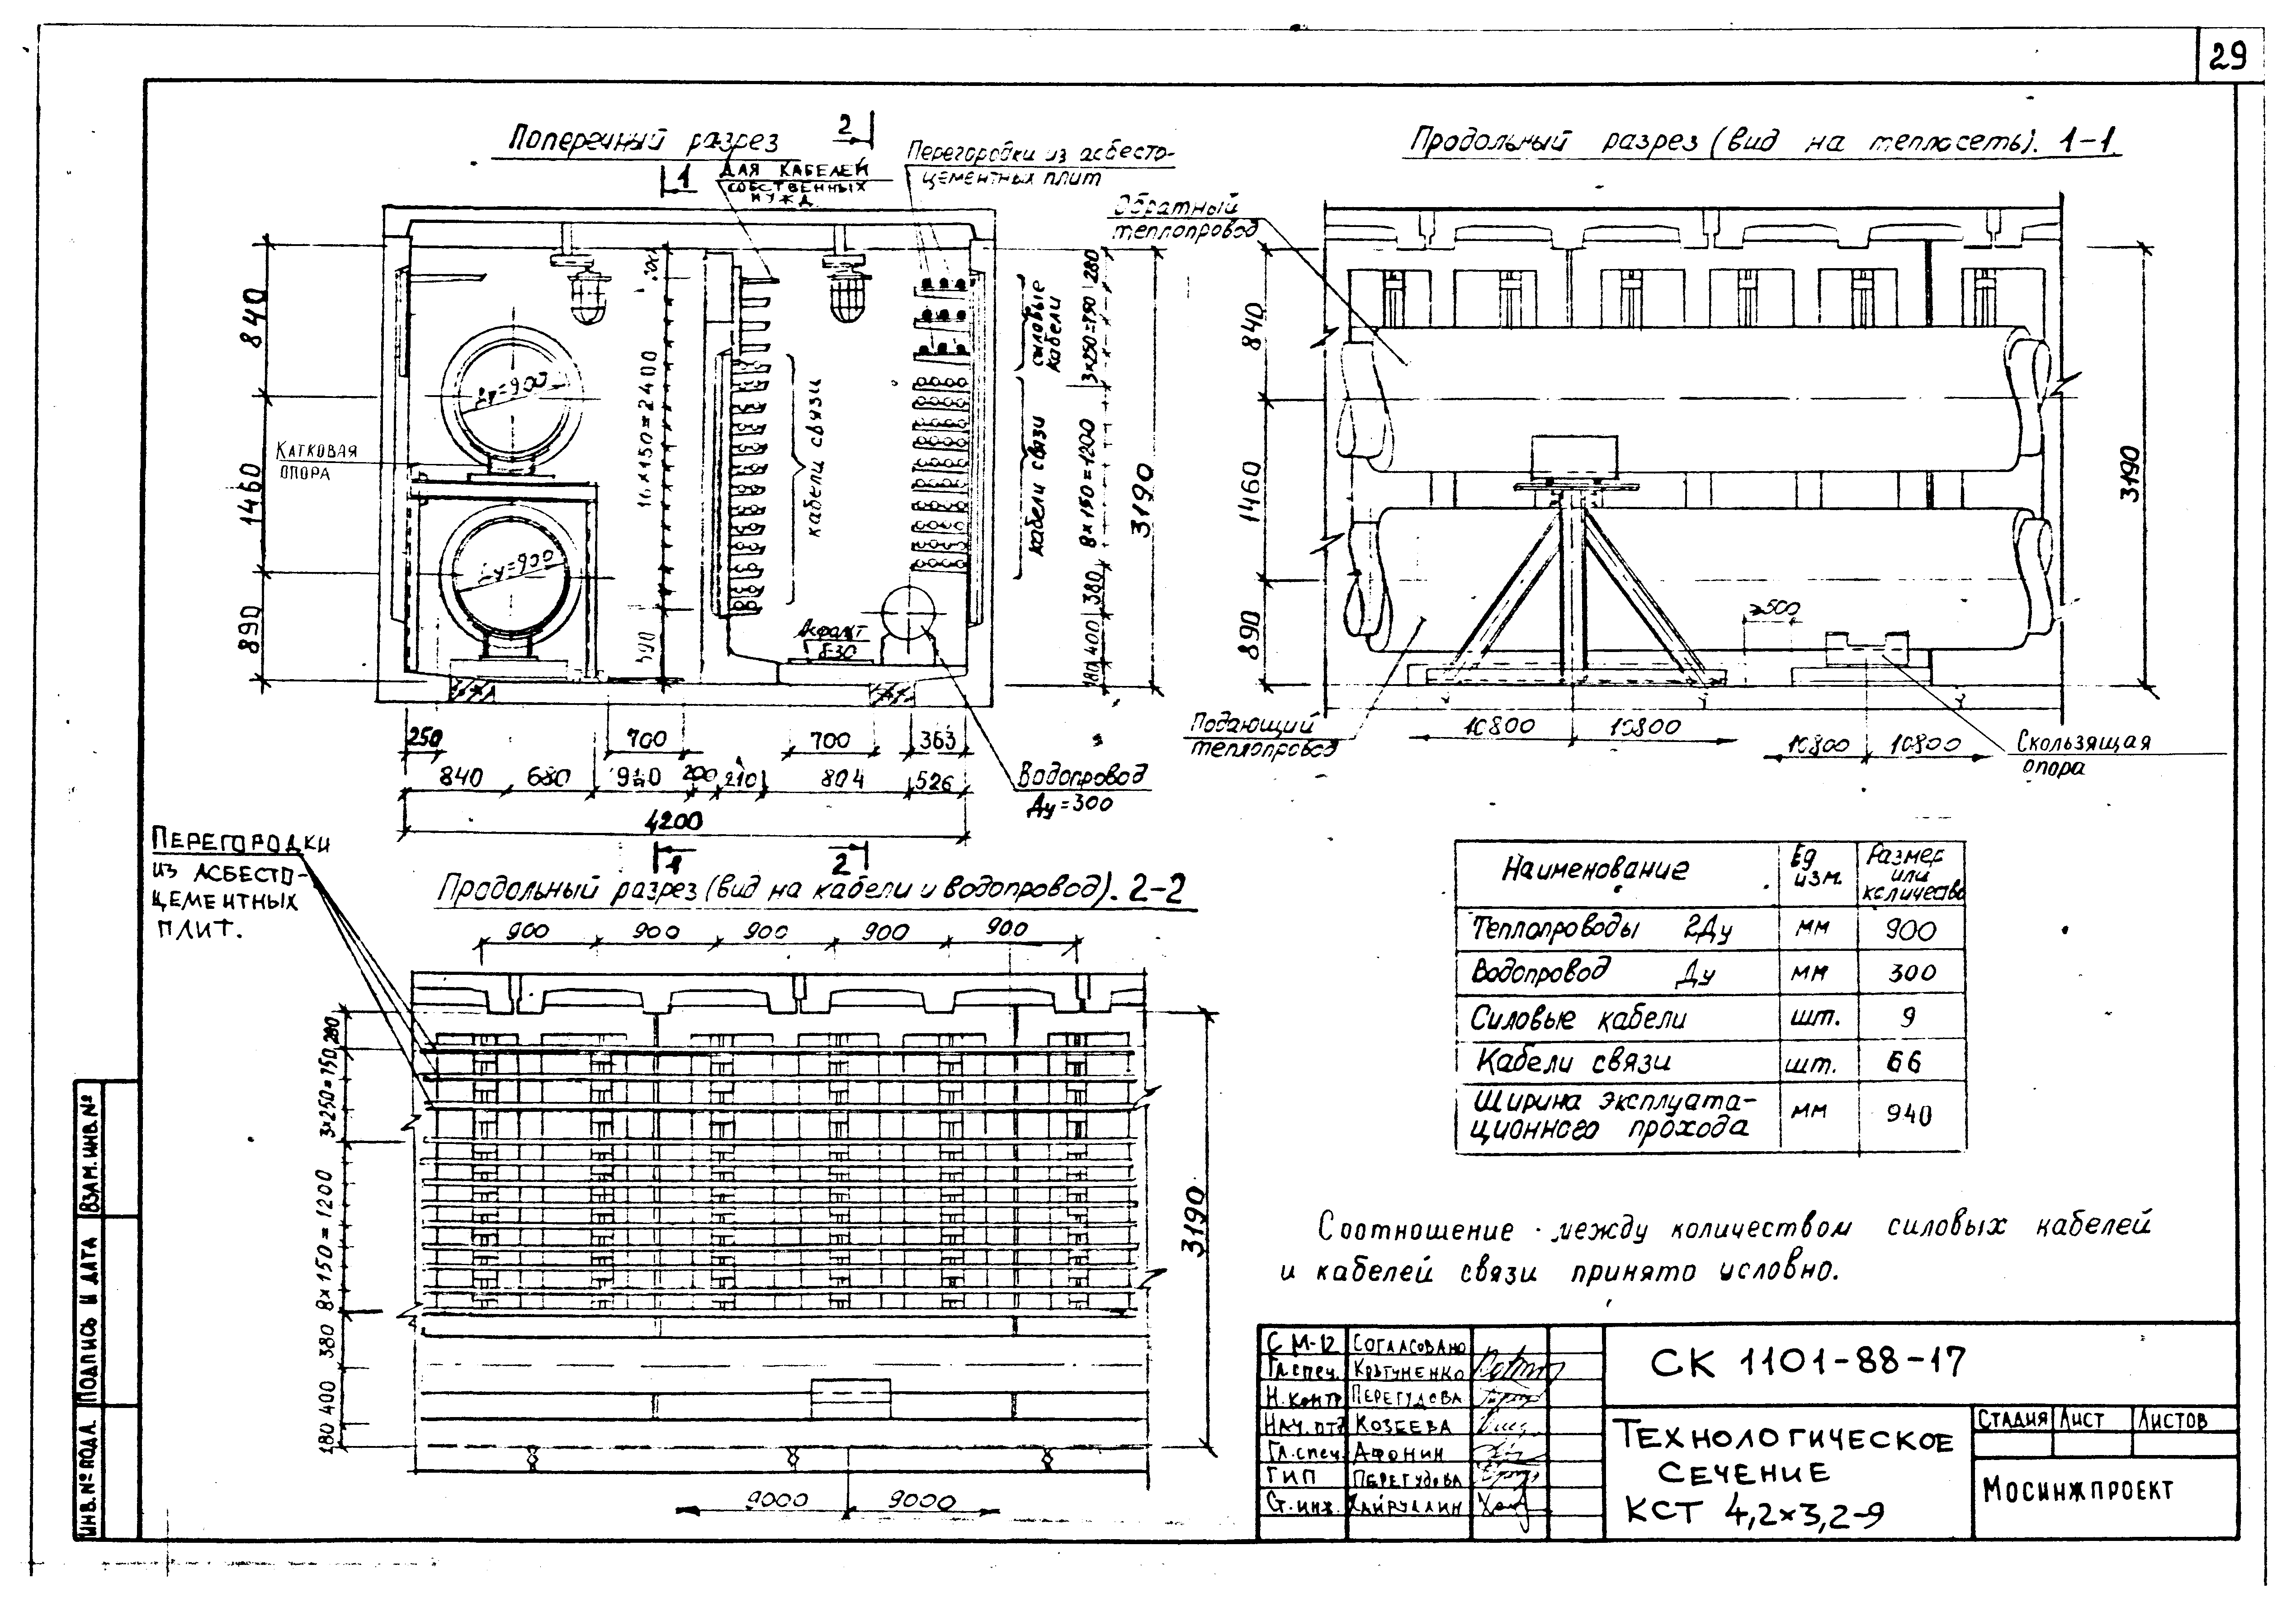 29
Поперечный разрез
2
1
Для кабелей
собственных
нужд
Перегородки из асбесто-
цементных плит
Продольный разрез (вид на теплосеть). 1-1
Обратный
теплопровод
840
1460
890
Ду=900
Катковая
опора
Ду=900
16×150=2400
кабели связи
Асфальт
δ30
силовые
кабели
кабели связи
280
3×250=750
8×150=1200
380
400
180
3190
840
1460
890
3190
≥500
Подающий
теплопровод
10800
10800
10800
10800
Скользящая
опора
250
700
700
363
840
680
940
200
210
804
526
4200
Водопровод
Ду=300
1
2
Перегородки
из асбесто-
цементных
плит.
Продольный разрез (вид на кабели и водопровод). 2-2
900
900
900
900
900
280
3×250=750
8×150=1200
380
400
180
3190
9000
9000
Наименование
Ед
изм.
Размер
или
количество
Теплопроводы 2Ду
мм
900
Водопровод Ду
мм
300
Силовые кабели
шт.
9
Кабели связи
шт.
66
Ширина эксплуата-
ционного прохода
мм
940
Соотношение между количеством силовых кабелей
и кабелей связи принято условно.
СМ-12 Согласовано
Гл.спец.
Н.контр Перегудова
Нач.отд Козеева
Гл.спец Афонин
ГИП Перегудова
Ст.инж. Хайруллин
СК 1101-88-17
Технологическое
сечение
КСТ 4,2×3,2-9
Стадия Лист Листов
Мосинжпроект
Взам.инв.№
Подпись и дата
Инв.№ подл.